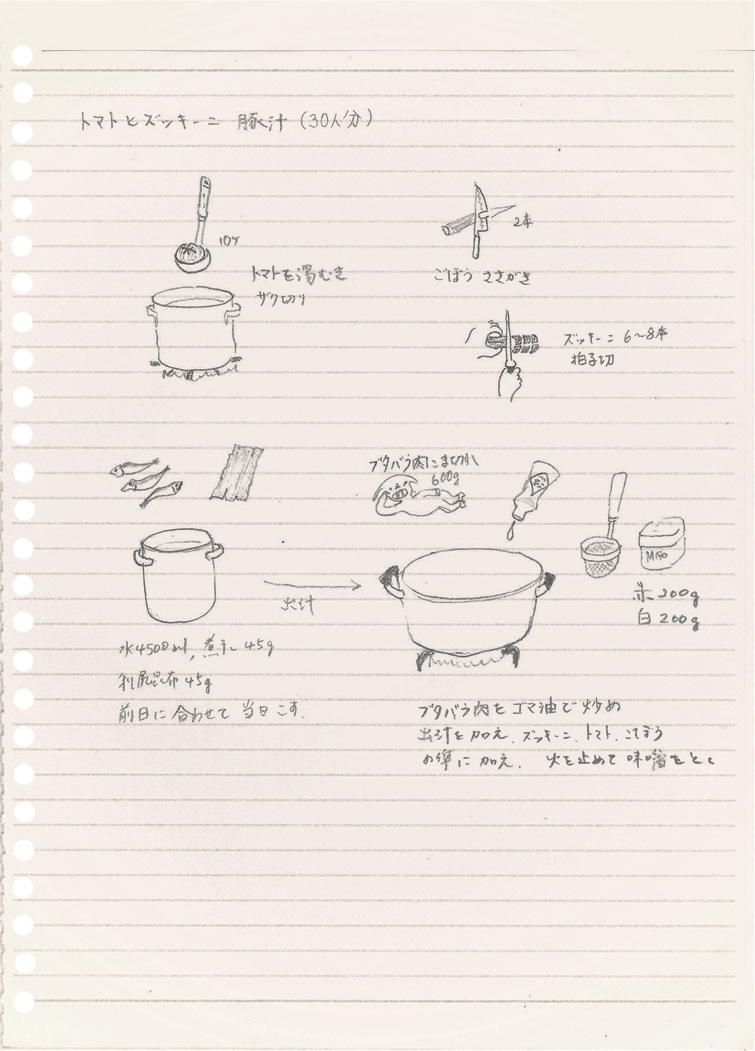 トマトとズッキーニ 豚汁 (30人分)
10ケ
トマトを湯むき
ザク切り
2本
ごぼう ささがき
ズッキーニ 6〜8本
拍子切
水4500ml, 煮干し 45g
利尻昆布 45g
前日に合わせて 当日こす.
出汁
ブタバラ肉こま切れ
600g
MISO
赤 200g
白 200g
ブタバラ肉を ゴマ油で炒め
出汁を加え、ズッキーニ、トマト、ごぼう
の準に加え、 火を止めて 味噌をとく